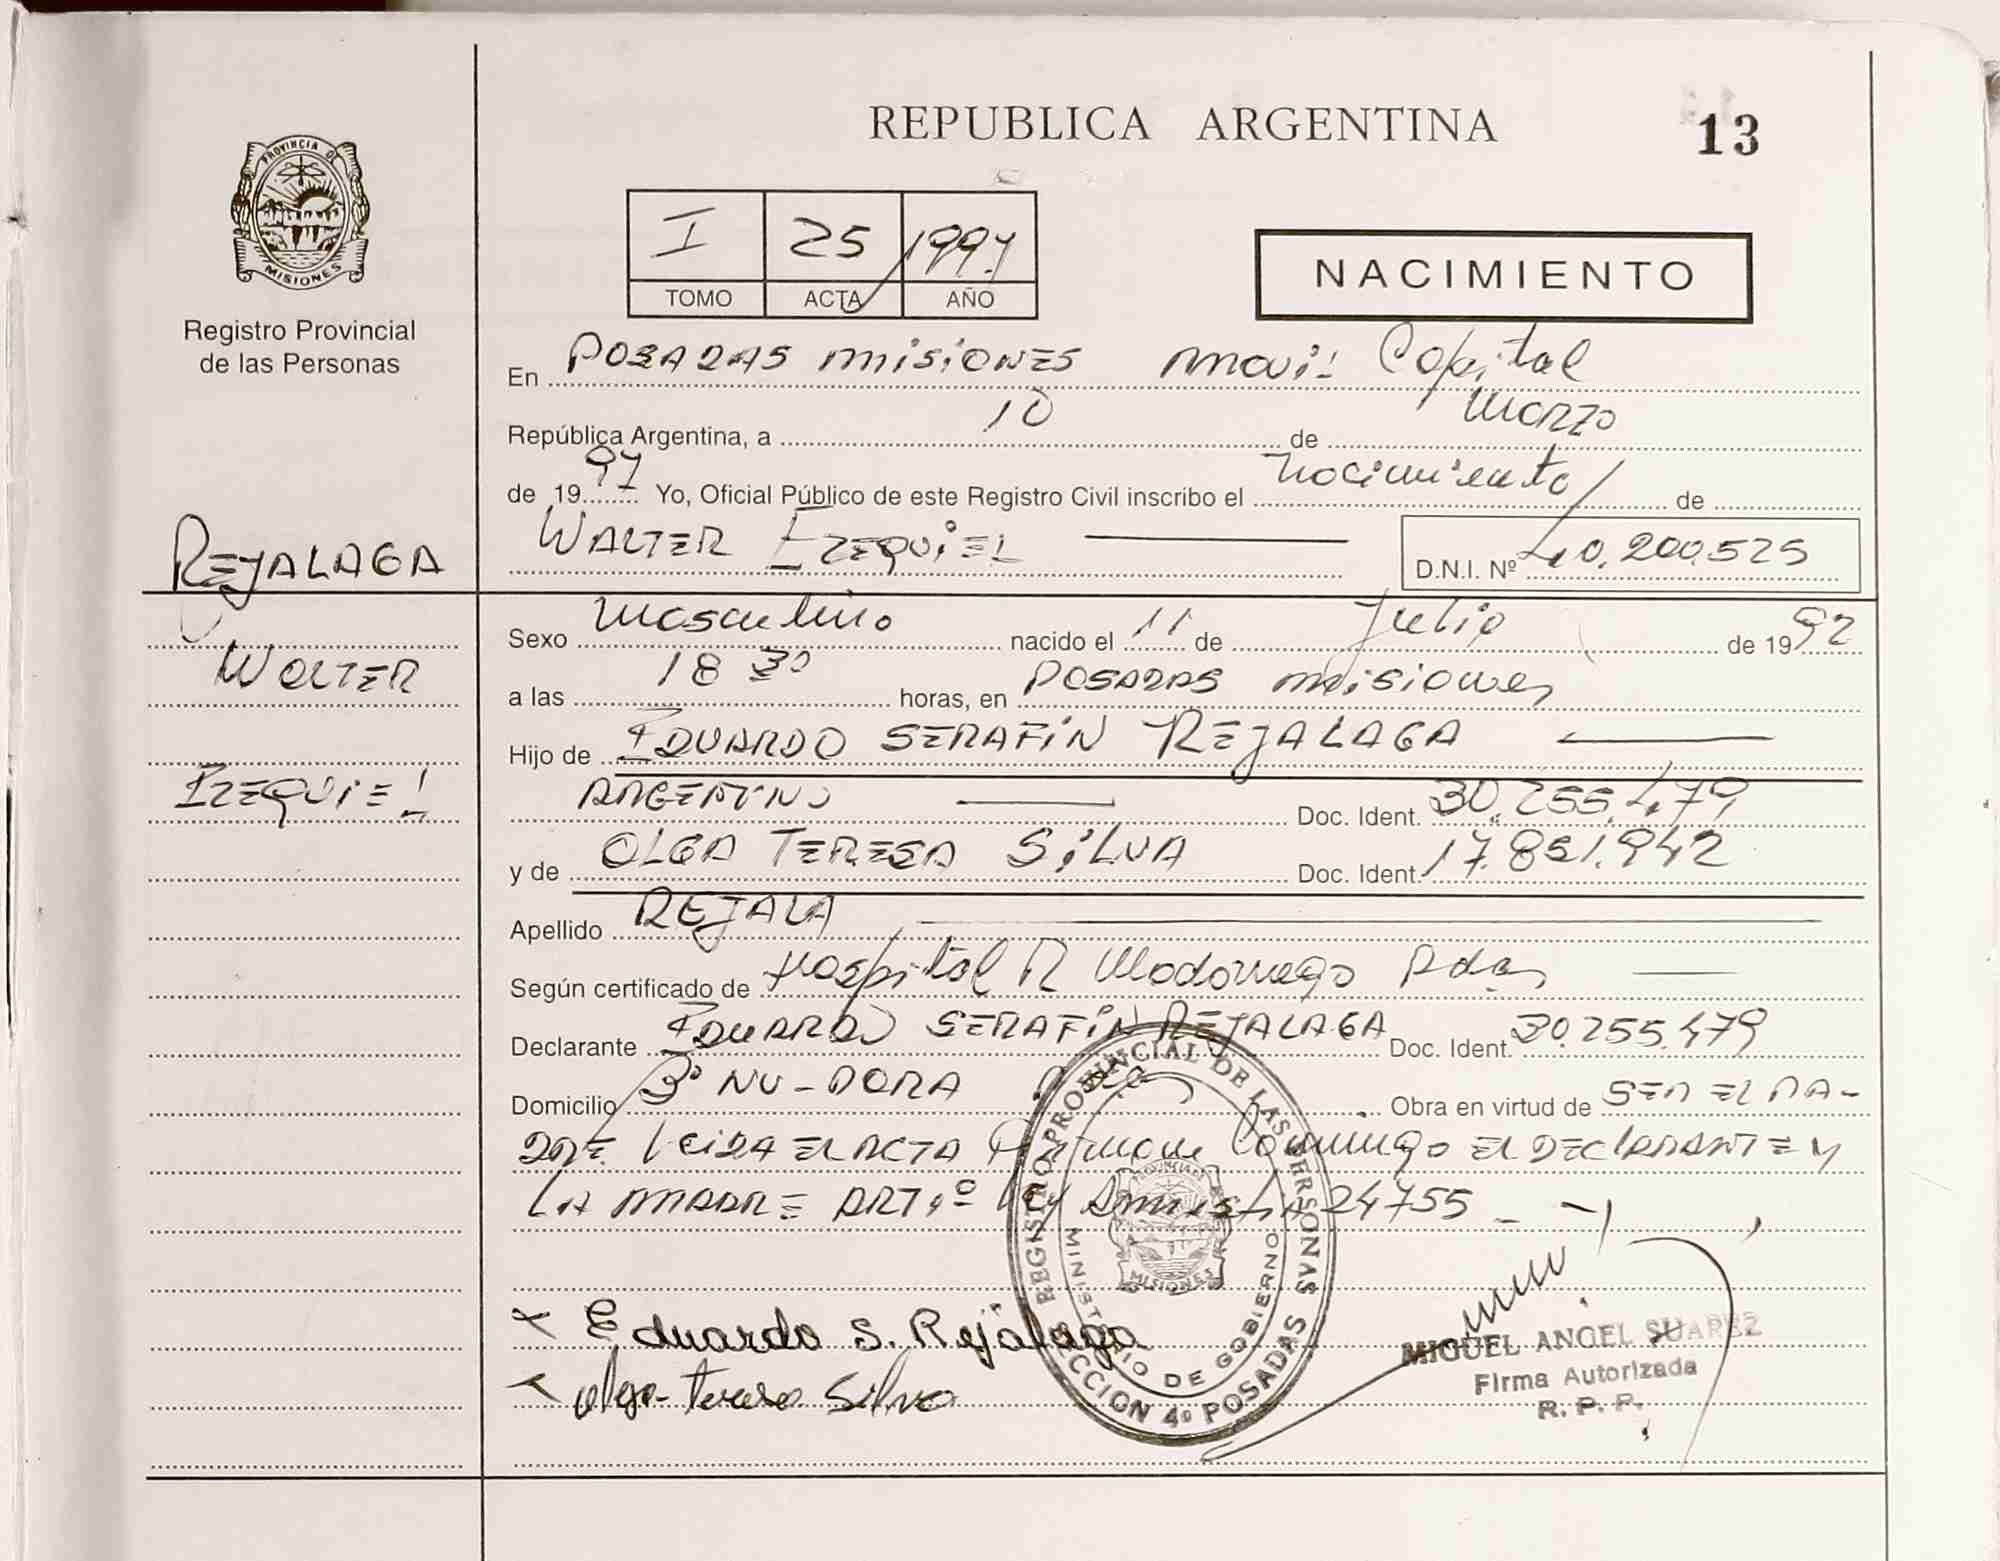 REPUBLICA ARGENTINA
13
PROVINCIA DE
MISIONES
Registro Provincial
de las Personas
I 25 1997
TOMO ACTA AÑO
NACIMIENTO
En POSADAS MISIONES Movil Capital
República Argentina, a 10 de Marzo
de 1997 Yo, Oficial Público de este Registro Civil inscribo el nacimiento de
WALTER EZEQUIEL D.N.I. Nº 40.200.525
REJALAGA
WALTER
EZEQUIEL
Sexo Masculino nacido el 11 de Julio de 1992
a las 18 30 horas, en POSADAS Misiones
Hijo de EDUARDO SERAFIN REJALAGA
ARGENTINO Doc. Ident. 30.255.479
y de OLGA TERESA SILVA Doc. Ident. 17.851.942
Apellido REJALA
Según certificado de Hospital R Madariaga Pdas
Declarante EDUARDO SERAFIN REJALAGA Doc. Ident. 30.255.479
Domicilio Bº NU-PORA Pdas Obra en virtud de SER EL PA-
DRE LEIDA EL ACTA Firman Conmigo EL DECLARANTE Y
LA MADRE ART. º Ley Amnistia 24755
Eduardo S. Rejalaga
Olga Teresa Silva
REGISTRO PROVINCIAL DE LAS PERSONAS
MINISTERIO DE GOBIERNO
SECCION 4º POSADAS
PROVINCIA DE
MISIONES
MIGUEL ANGEL SUAREZ
Firma Autorizada
R. P. P.